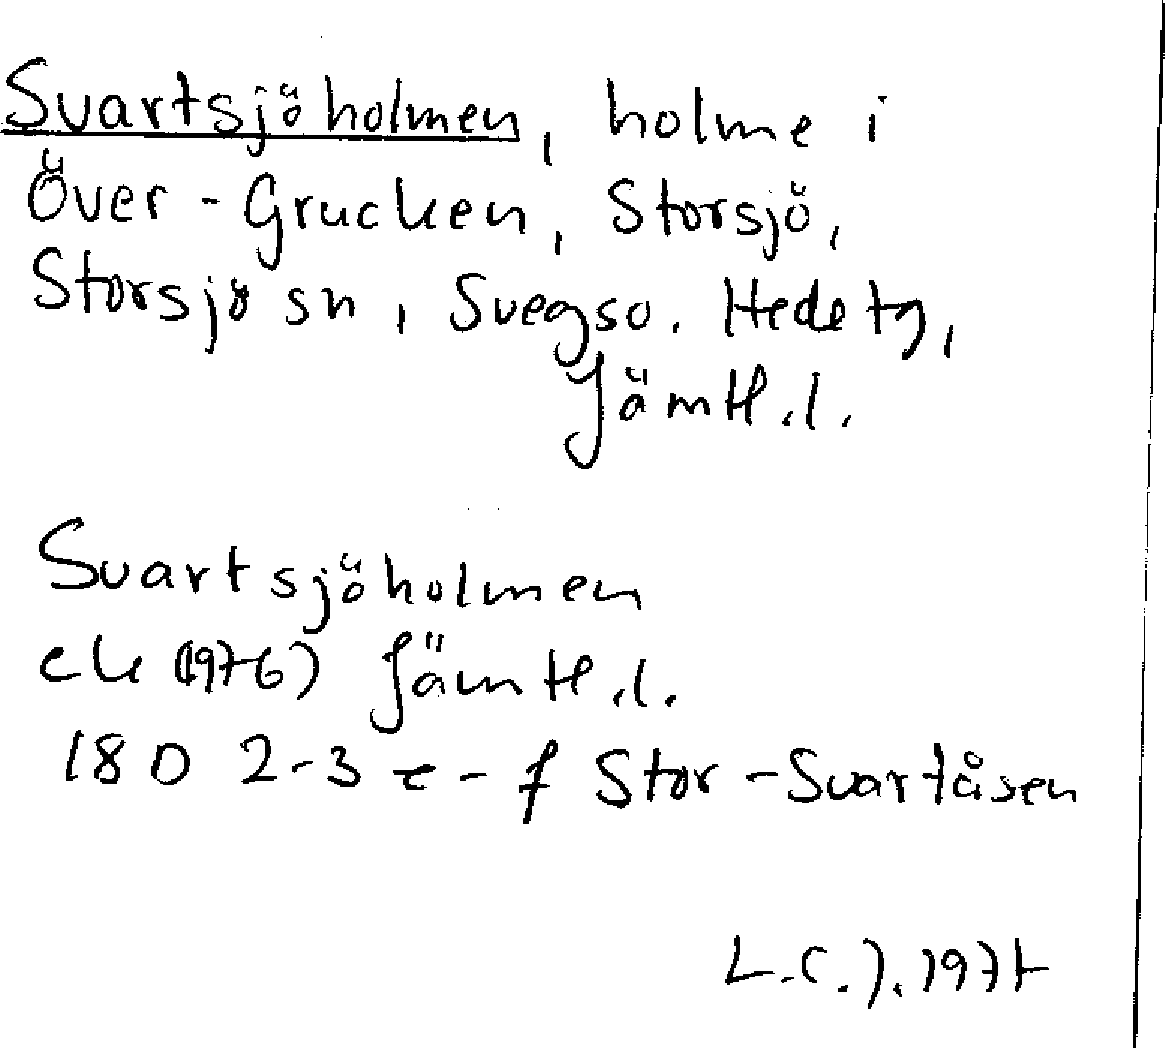 Svartsjöholmen, holme i
Över-Grucken, Storsjö,
Storsjö sn, Svegso. Hede tg,
Jämtl.l.
Svartsjöholmen
ek (1976) Jämtl.l.
18 D 2-3 e-f Stor-Svartåsen
L.C.J. 1977